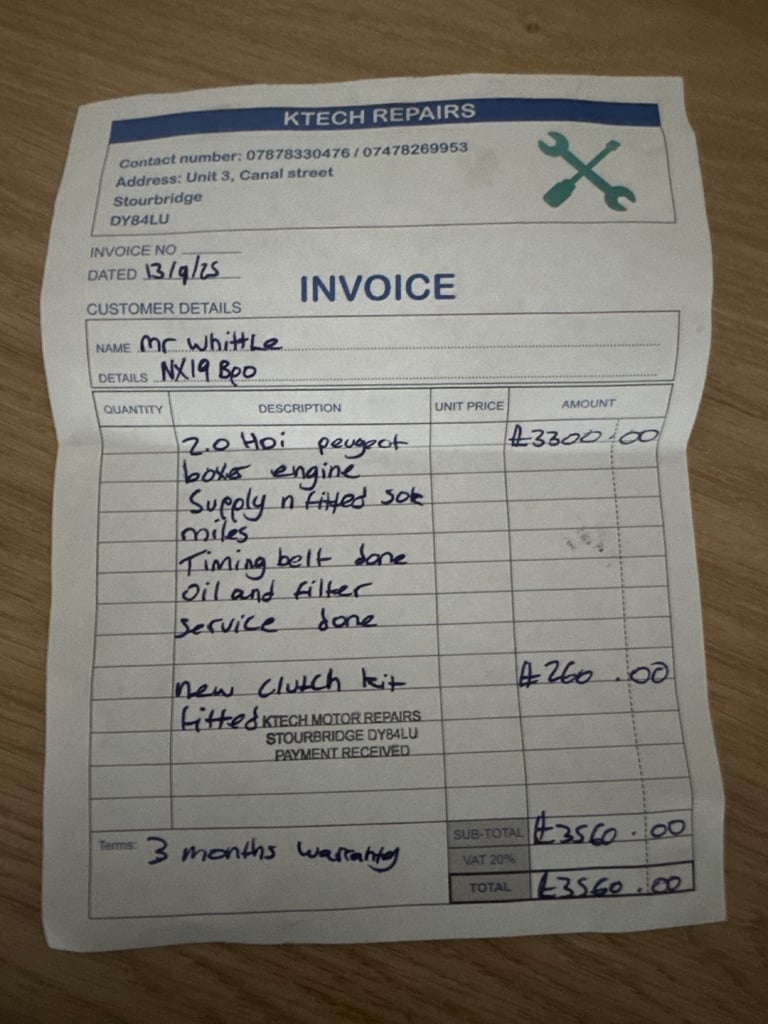 KTECH REPAIRS
Contact number: 07878330476 / 07478269953
Address: Unit 3, Canal street
Stourbridge
DY84LU
INVOICE NO
DATED 13/9/25
INVOICE
CUSTOMER DETAILS
NAME Mr Whittle
DETAILS NX19 BPO
QUANTITY DESCRIPTION UNIT PRICE AMOUNT
2.0 HDi peugeot £3300.00
boxer engine
Supply n fitted 50k
miles
Timing belt done
Oil and filter
service done
new clutch kit £260.00
fitted KTECH MOTOR REPAIRS
STOURBRIDGE DY84LU
PAYMENT RECEIVED
Terms: 3 months warranty
SUB-TOTAL £3560.00
VAT 20%
TOTAL £3560.00